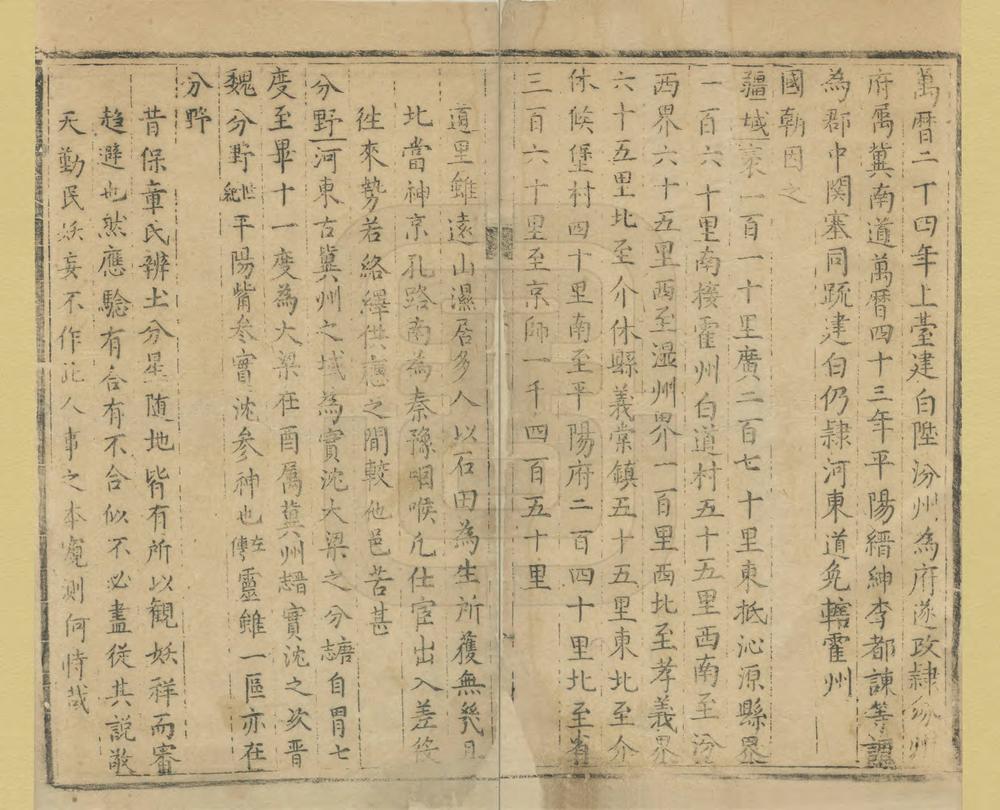 萬曆二丁四年上臺建白陞汾州為府遂改隸汾州
府屬冀南道萬曆四十三年平陽縉紳李都諫等謂
為郡中関塞同䟽建白仍隸河東道兔轄霍州
國朝因之
疆域袤一百一十里廣二百七十里東抵沁源縣界
一百六十里南接霍州白道村五十五里西南至汾
西界六十五里西至湿州界一百里西北至孝義界
六十五里北至介休縣義棠鎮五十五里東北至介
休候堡村四十里南至平陽府二百四十里北至省
三百六十里至京師一千四百五十里
道里雖遠山濕居多人以石田為生所獲無幾且
北當神京孔路南為秦豫咽喉凢仕宦出入差役
徃來勢若絡繹供應之間較他邑苦甚
分野河東古冀州之域為實沈大梁之分唐志自胃七
度至畢十一度為大梁在酉屬冀州晉志實沈之次晉
魏分野世紀平陽觜參實沈參神也左傳靈雖一區亦在
分野
昔保章氏辨土分星随地皆有所以觀妖祥而審
趋避也然應騐有合有不合似不必盡從其説敬
天勤民妖妄不作此人事之本寬則何時哉